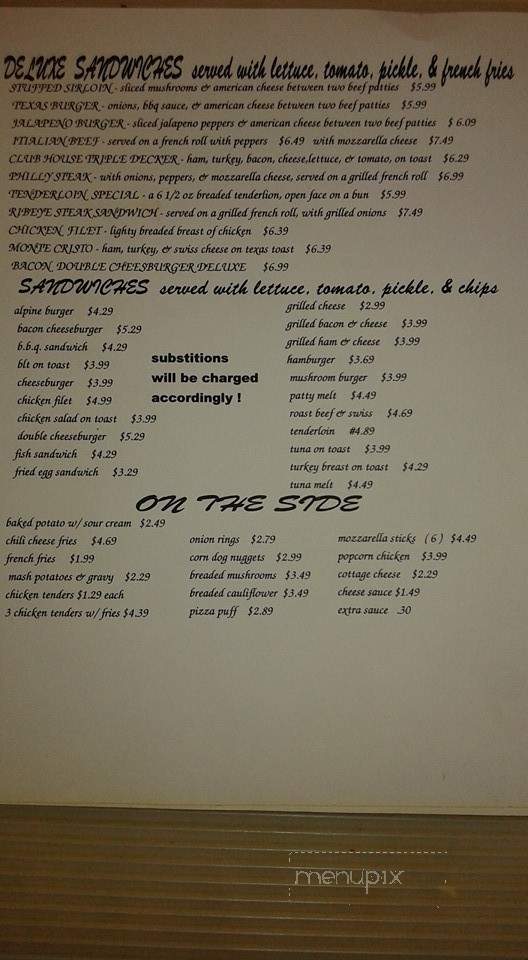 DELUXE SANDWICHES served with lettuce, tomato, pickle, & french fries
STUFFED SIRLOIN - sliced mushrooms & american cheese between two beef patties $5.99
TEXAS BURGER - onions, bbq sauce, & american cheese between two beef patties $5.99
JALAPENO BURGER - sliced jalapeno peppers & american cheese between two beef patties $ 6.09
ITIALIAN BEEF - served on a french roll with peppers $6.49 with mozzarella cheese $7.49
CLUB HOUSE TRIPLE DECKER - ham, turkey, bacon, cheese,lettuce, & tomato, on toast $6.29
PHILLY STEAK - with onions, peppers, & mozzarella cheese, served on a grilled french roll $6.99
TENDERLOIN SPECIAL - a 6 1/2 oz breaded tenderlion, open face on a bun $5.99
RIBEYE STEAK SANDWICH - served on a grilled french roll, with grilled onions $7.49
CHICKEN FILET - lighty breaded breast of chicken $6.39
MONTE CRISTO - ham, turkey, & swiss cheese on texas toast $6.39
BACON DOUBLE CHEESBURGER DELUXE $6.99
SANDWICHES served with lettuce, tomato, pickle, & chips
alpine burger $4.29
bacon cheeseburger $5.29
b.b.q. sandwich $4.29
blt on toast $3.99
cheeseburger $3.99
chicken filet $4.99
chicken salad on toast $3.99
double cheeseburger $5.29
fish sandwich $4.29
fried egg sandwich $3.29
substitions
will be charged
accordingly !
grilled cheese $2.99
grilled bacon & cheese $3.99
grilled ham & cheese $3.99
hamburger $3.69
mushroom burger $3.99
patty melt $4.49
roast beef & swiss $4.69
tenderloin #4.89
tuna on toast $3.99
turkey breast on toast $4.29
tuna melt $4.49
ON THE SIDE
baked potato w/ sour cream $2.49
chili cheese fries $4.69
french fries $1.99
mash potatoes & gravy $2.29
chicken tenders $1.29 each
3 chicken tenders w/ fries $4.39
onion rings $2.79
corn dog nuggets $2.99
breaded mushrooms $3.49
breaded cauliflower $3.49
pizza puff $2.89
mozzarella sticks ( 6 ) $4.49
popcorn chicken $3.99
cottage cheese $2.29
cheese sauce $1.49
extra sauce .30
menupix